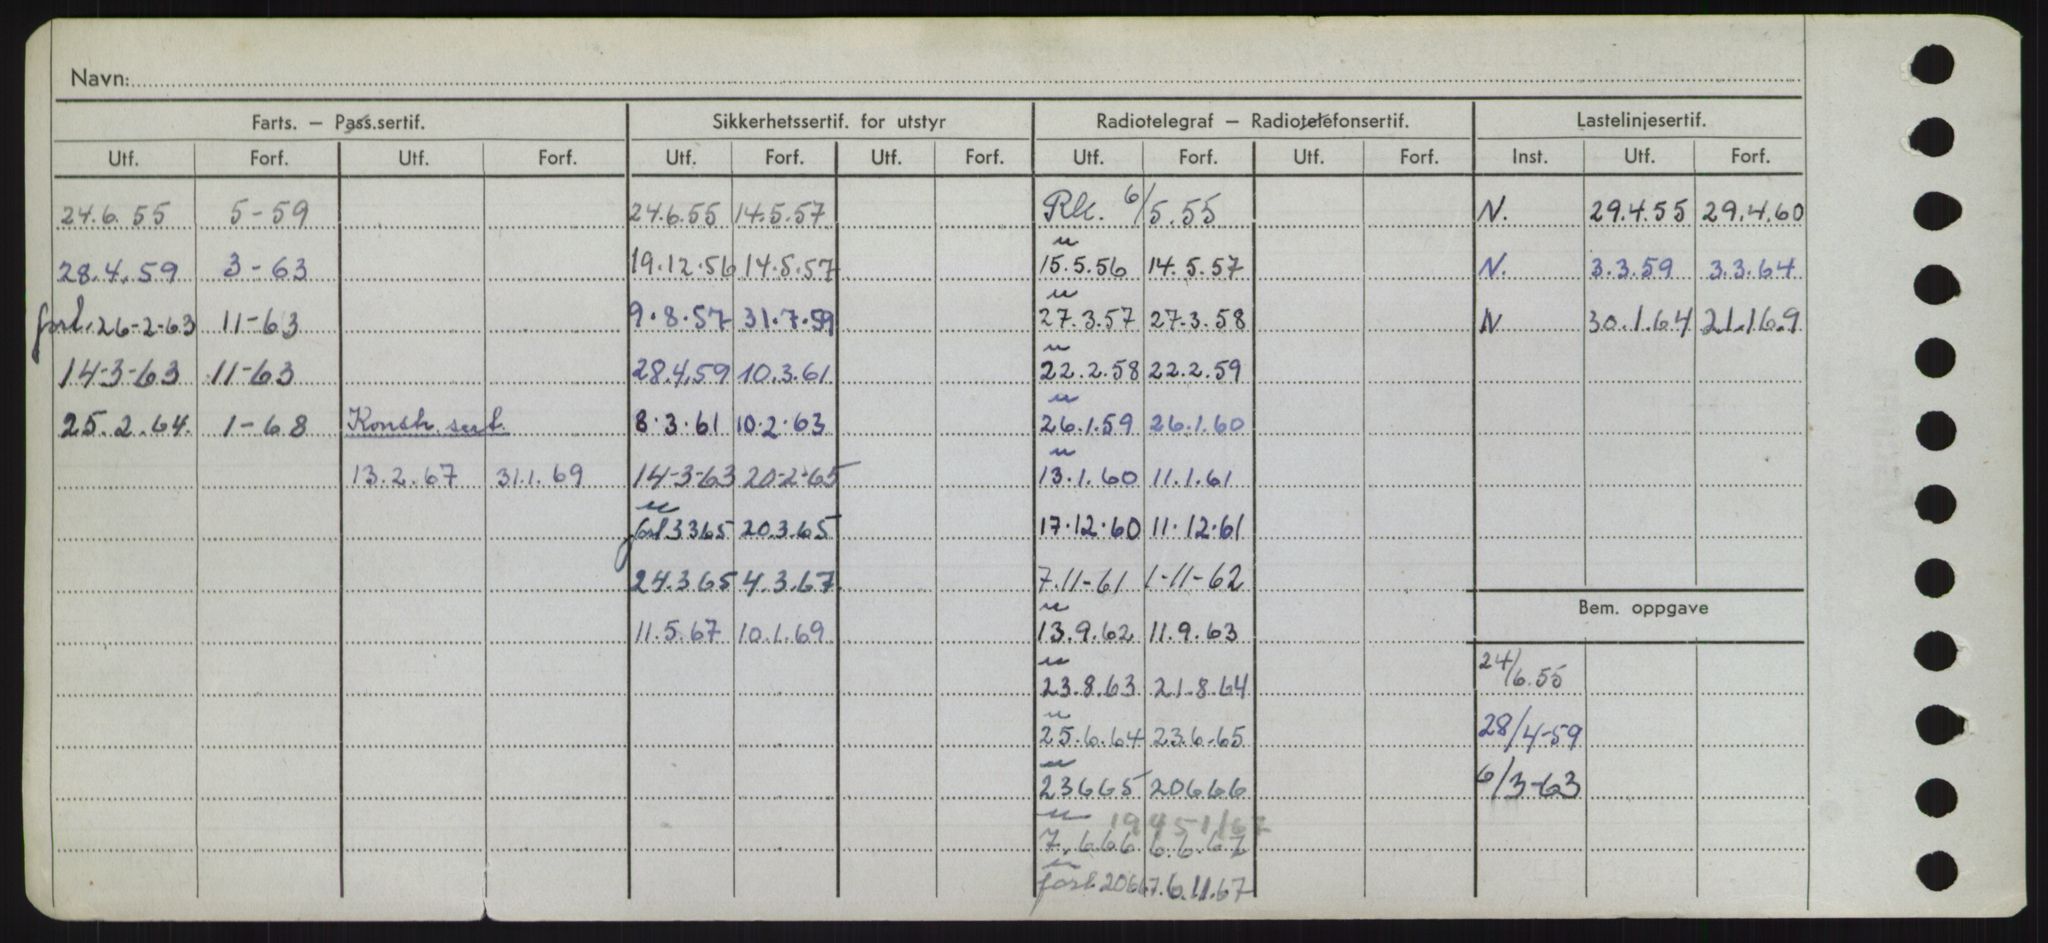 Navn:
Farts. — Pass.sertif. Sikkerhetssertif. for utstyr Radiotelegraf — Radiotelefonsertif. Lastelinjesertif.
Utf. Forf. Utf. Forf. Utf. Forf. Utf. Forf. Utf. Forf. Utf. Forf. Inst. Utf. Forf.
24.6.55 5-59 24.6.55 14.5.57 Rk. 6/5.55 N. 29.4.55 29.4.60
28.4.59 3-63 19.12.56 14.5.57 " 15.5.56 14.5.57 N. 3.3.59 3.3.64
forl. 26-2-63 11-63 9.8.57 31.7.59 " 27.3.57 27.3.58 N 30.1.64 21.1.69
14-3-63 11-63 28.4.59 10.3.61 " 22.2.58 22.2.59
25.2.64. 1-68 Konstr. sert. 8.3.61 10.2.63 " 26.1.59 26.1.60
13.2.67 31.1.69 14-3-63 20-2-65 " 13.1.60 11.1.61
" forl 3365 20.3.65 17.12.60 11.12.61
24.3.65 4.3.67. 7.11-61 1-11-62
Bem. oppgave
11.5.67 10.1.69 " 13.9.62 11.9.63
24/6.55
" 23.8.63 21.8.64
" 25.6.64 23.6.65 28/4-59
" 23665 20666 6/3-63
" 7.666 6.6.67
" forl. 20667. 6.11.67